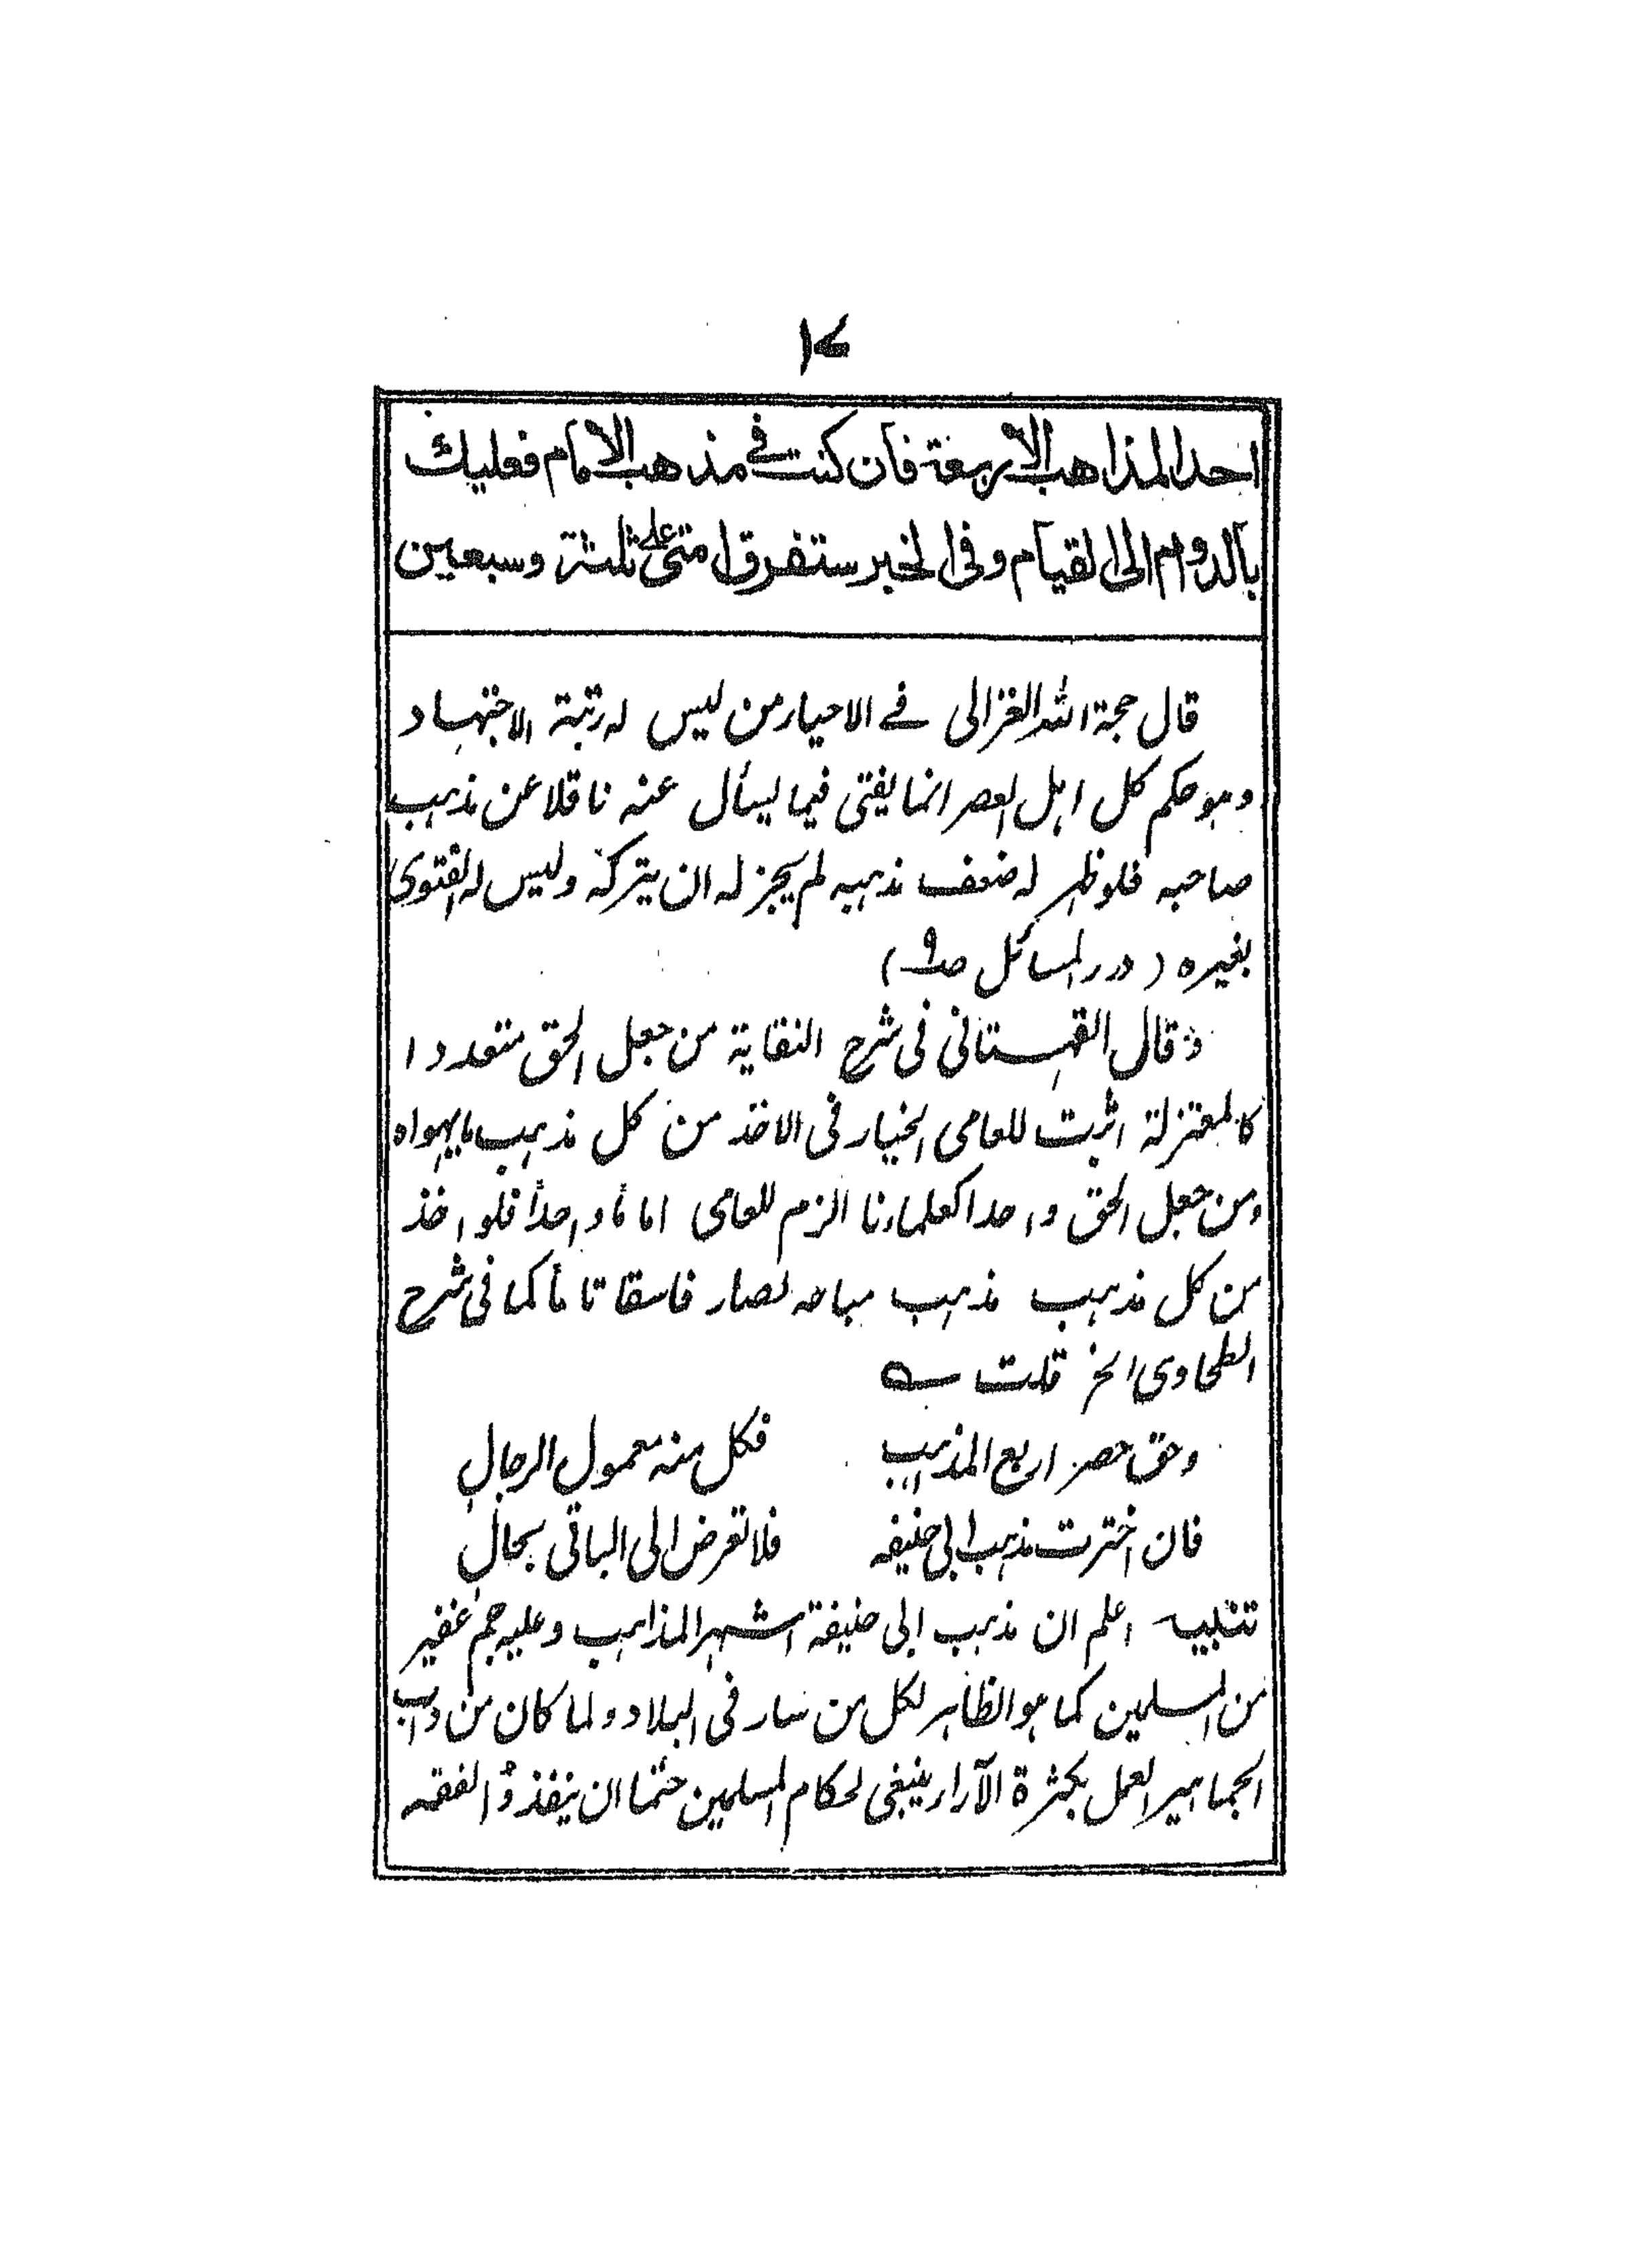 ۱۷
احد المذاهب الاربعة فان كنت فی مذهب الامام فعليك
بالدوام الی القیام وفی الخبر ستفرق امتی علی ثلثة وسبعین
قال حجة الله الغزالی فی الاحیاء من لیس له رتبة الاجتهاد
وهو حکم کل اهل العصر انما یفتی فیما یسأل عنه ناقلا عن مذهب
صاحبه فلو ظهر له ضعف مذهبه لم یجز له ان یترکه ولیس له الفتوی
بغیره (درر المسائل صـ۹)
وقال القهستانی فی شرح النقایة من جعل الحق متعددا
کالمعتزلة اثبت للعامی الخیار فی الاخذ من کل مذهب ما یهواه
ومن جعل الحق واحدا کعلماءنا الزم للعامی اماماً واحداً فلو اخذ
من کل مذهب مذهب مباحه لصار فاسقا تاماً کما فی شرح
الطحاوی الخ قلت ؎
وحق حصر اربع المذهب فکل منه معمول الرجال
فان اخترت مذهب ابی حنیفه فلا تعرض الی الباقی بحال
تنبیه اعلم ان مذهب ابی حنیفة اشهر المذاهب وعلیه جم غفیر
من المسلمین کما هو الظاهر لکل من سار فی البلاد ولما کان من داب
الجماهیر العمل بکثرة الآراء ینبغی لحکام المسلمین حتما ان ینفذوا الفقه